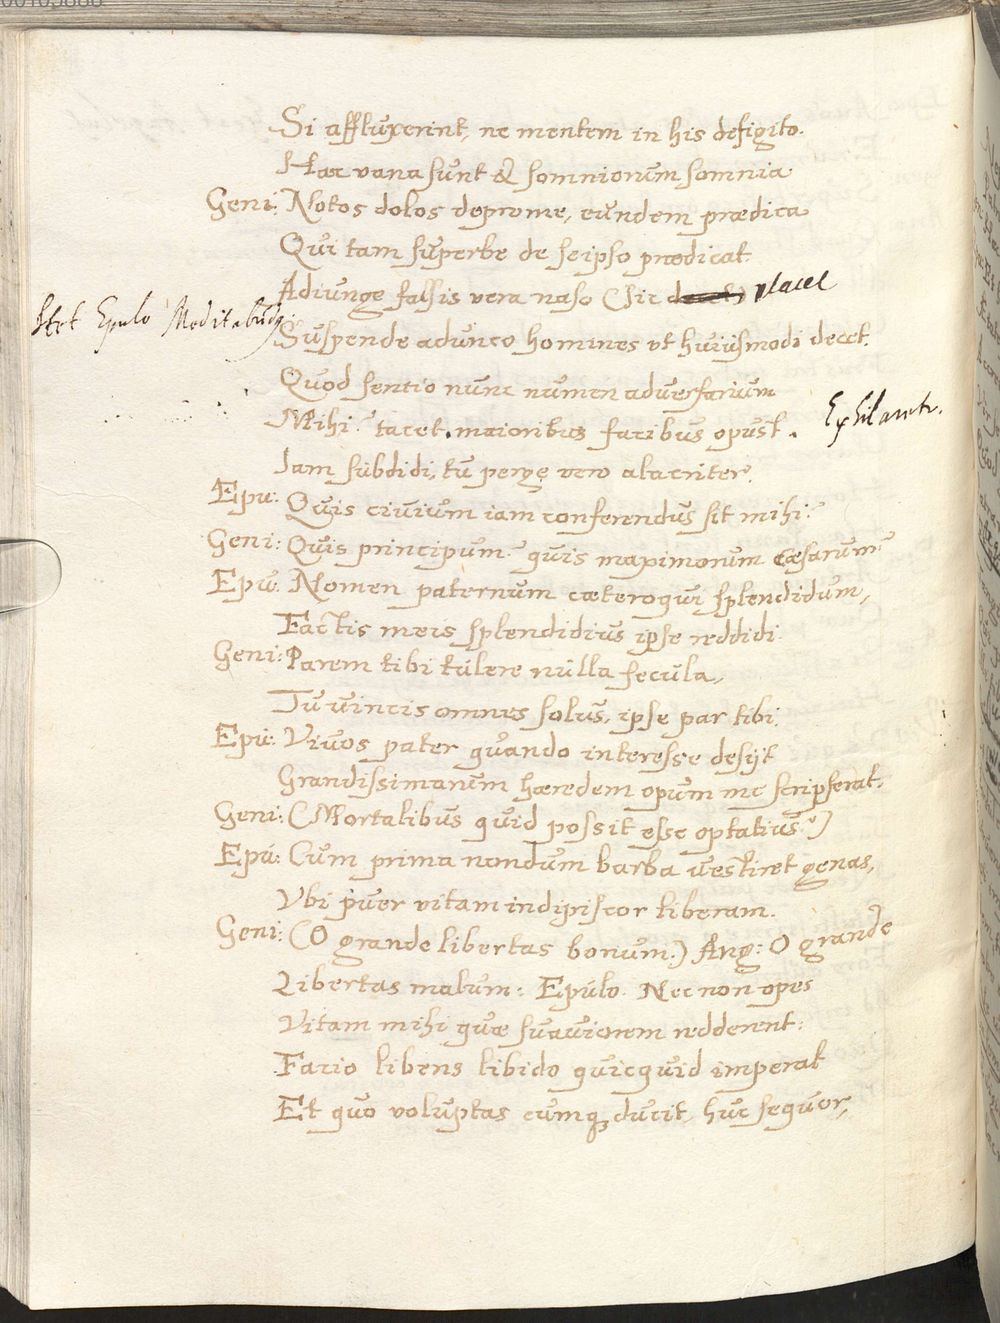 Si affluxerint, ne mentem in his defigito.
Hæc vana sunt & somniorum somnia
Geni: Notos dolos deprome, eundem prædica
Qui tam superbe de seipso prædicat
Adiunge falsis vera naso (sic placet
Stet Epulo Meditabūdꝰ.
Suspende adunco homines vt huiusmodi decet.
Quod sentio nunc numen aduersarium
Mihi? tacet. maioribus facibus opust.
Exhilaretr.
Iam subdidi, tu perge vero alacriter.
Epu: Quis ciuium iam conferendus sit mihi?
Geni: Quis principum? quis maximorum Cæsarum?
Epu: Nomen paternum cæteroqui splendidum,
Factis meis splendidius ipse reddidi.
Geni: Parem tibi tulere nulla secula,
Tu vincis omnes solus, ipse par tibi.
Epu: Viuos pater quando interesse desijt
Grandissimarum hæredem opum me scripserat.
Geni: (Mortalibus quid possit esse optatius?)
Epu: Cum prima nondum barba vestiret genas,
Vbi puer vitam indipiscor liberam.
Geni: (O grande libertas bonum.) Ang: O grande
Libertas malum: Epulo. Nec non opes
Vitam mihi quæ suauiorem redderent:
Facio libens libido quicquid imperat
Et quo voluptas cumq; ducit, huc sequor,